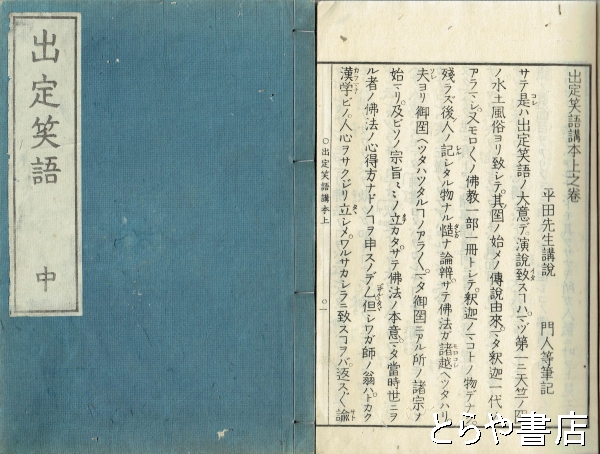 出定笑語
中
出定笑語講本上之卷
平田先生講説　門人等筆記
サテ是ハ出定笑語ノ大意デ演説致スコハマヅ第一ニ天竺ノ国
ノ水土風俗ヨリ致シテ其国ノ始メノ傳説由來マタ釈迦一代ノ
アラマシ又モロ〱ノ佛教一部一冊トシテ釈迦ノマコトノ物デナク
殘ラズ後人ノ記シタル物ナル慥ナ論辨サテ佛法ガ諸越ヘツタハリ
夫ヨリ御国ヘツタハツタルコノアラ〱マタ御国ニアル所ノ諸宗ノ
始マリ及ビソノ宗旨〻ノ立カタサテ佛法ノ本意マタ當時世ニヲ
ル者ノ佛法ノ心得方ナドノコヲ申スノデ但シワガ師ノ翁ハトカク
漢学ビノ人心ヲサクジリ立レメワルサカシラニ致スコヲバ返ス〲諭
○出定笑語講本上
○一
とらや書店